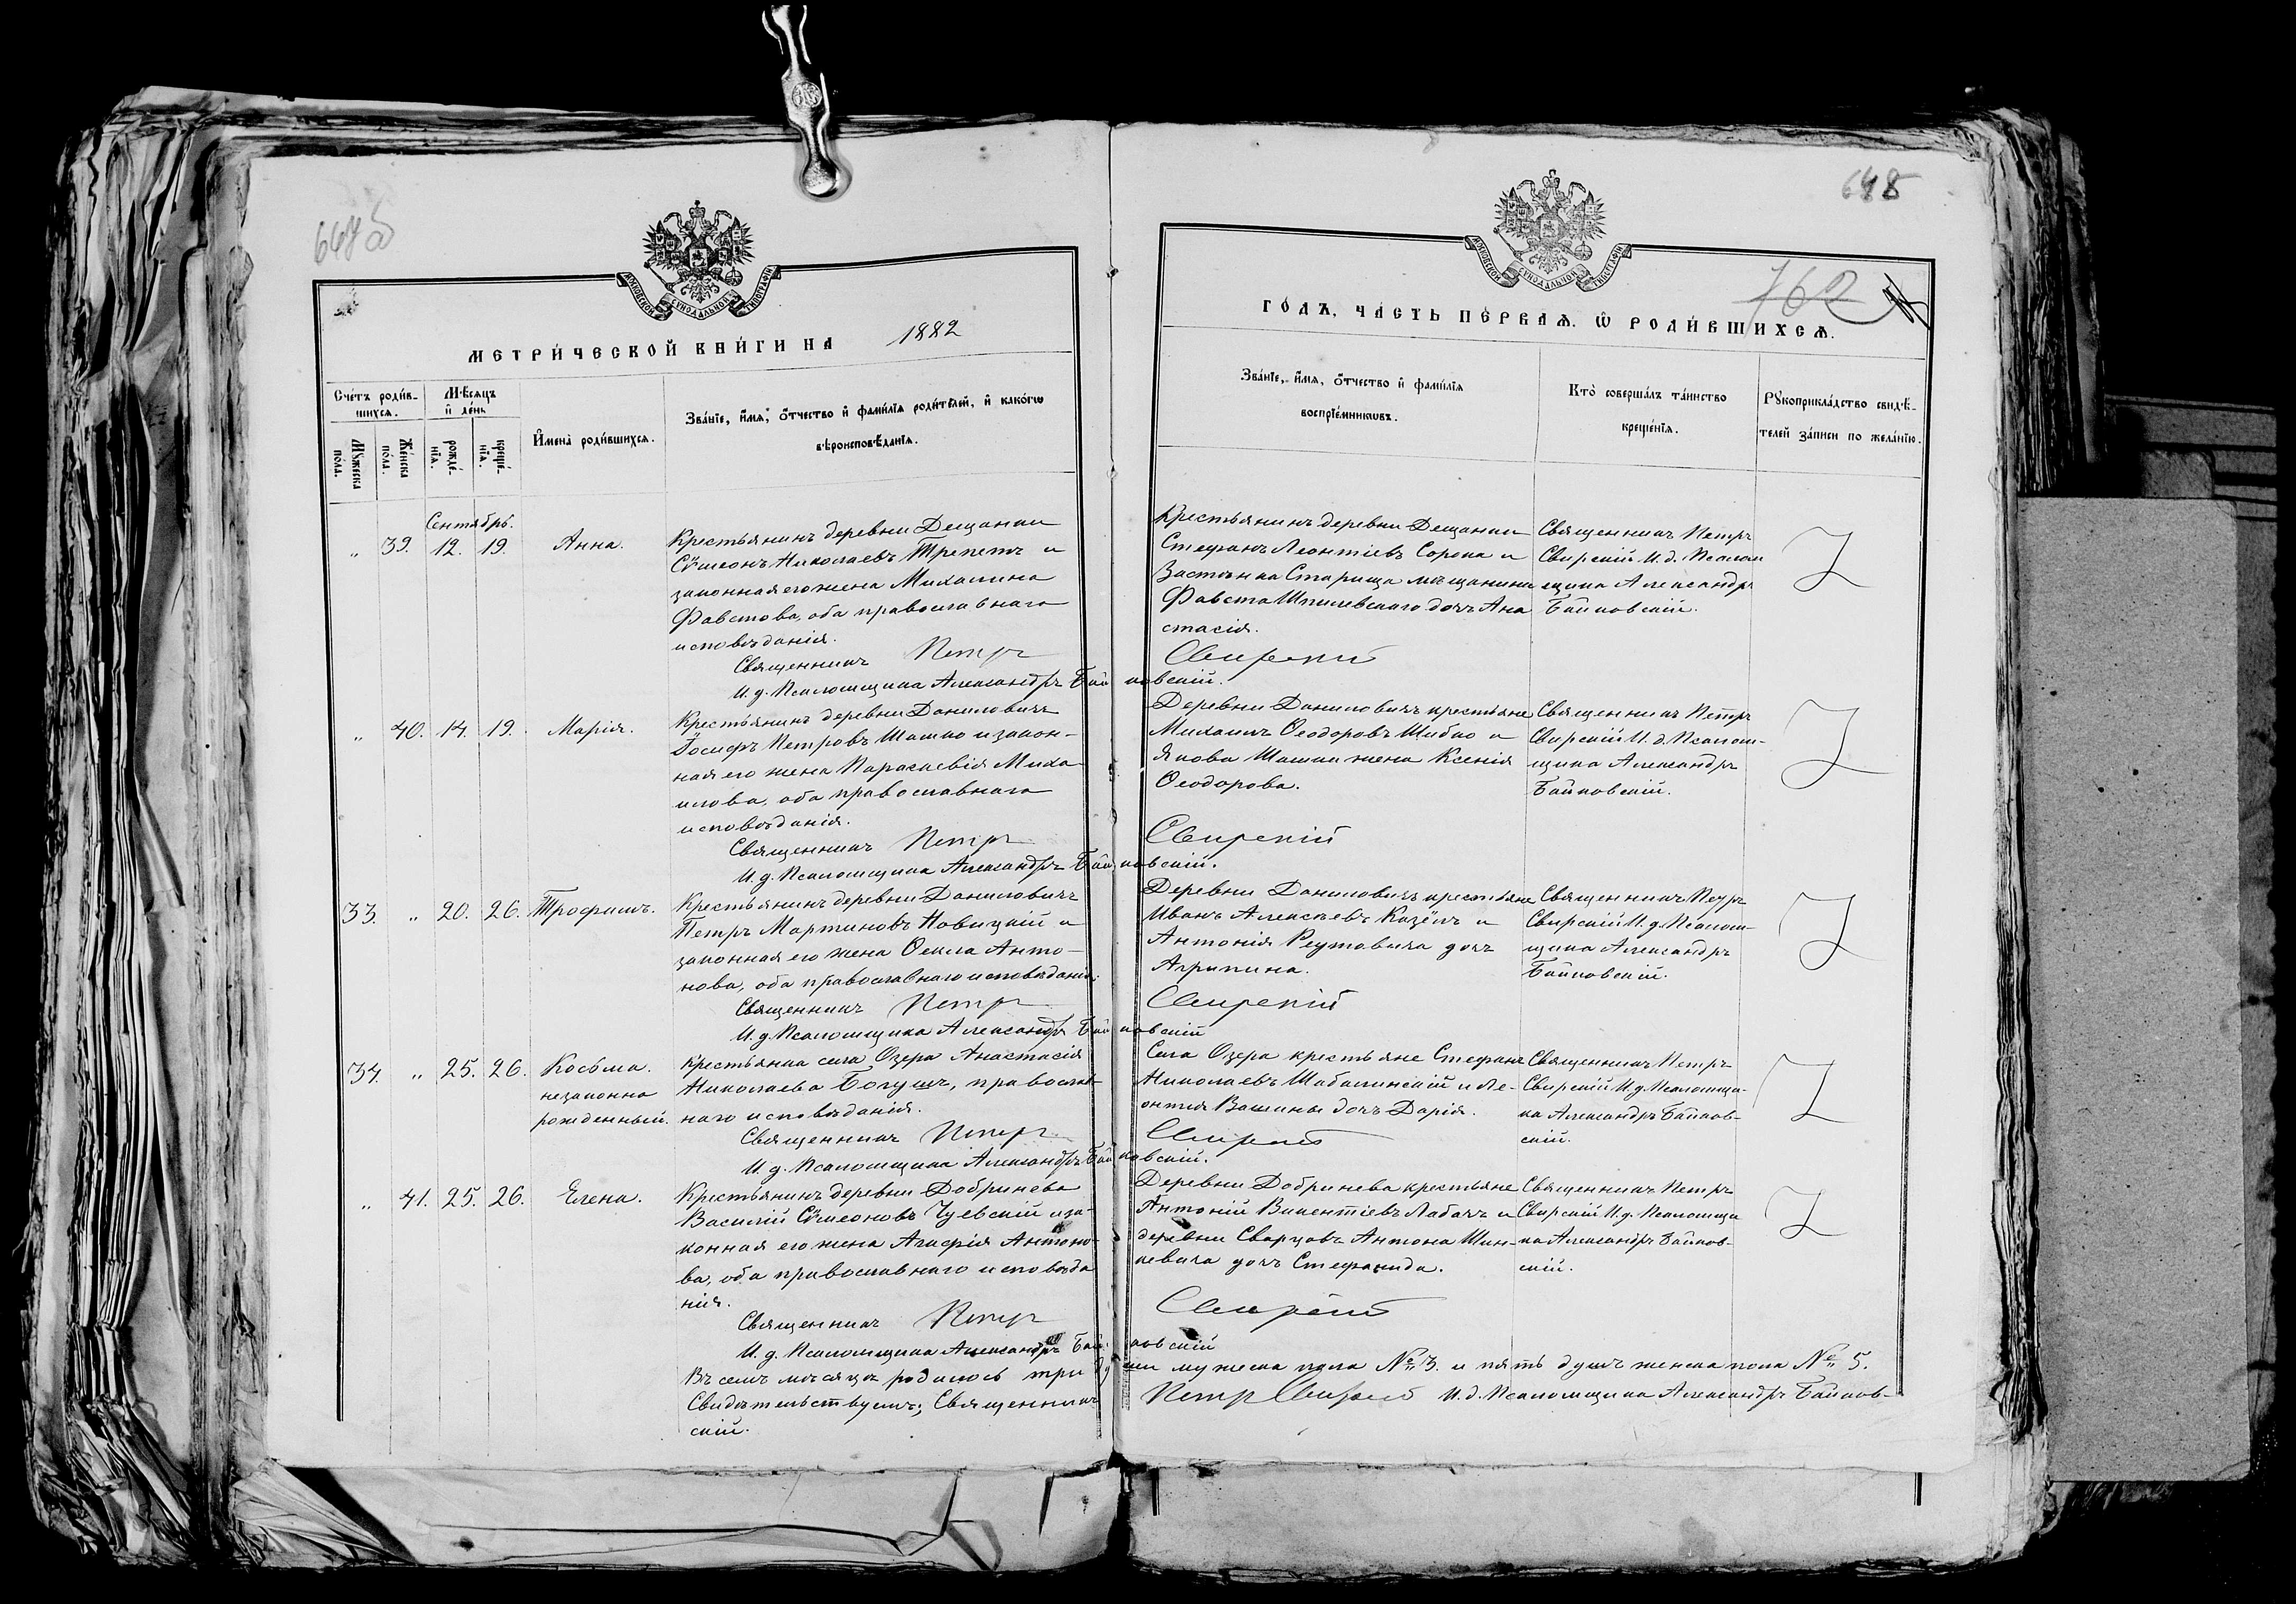 648
МЕТРИ́ЧЕСКОЙ КНИ́ГИ НА 1882
Сче́тъ роди́в-
шихсѧ.
Мѣсяцъ
и҆ де́нь
И҆мена̀ роди́вшихсѧ.
Зва́нїе, и҆́мѧ, ѻ҆́тчество и҆ фами́лїѧ роди́телей, и҆ како́гѡ
вѣроисповѣ́данїѧ.
Мꙋжеска
по́ла.
Же́нска
по́ла.
рожде́-
нїѧ.
креще́-
нїѧ.
Сентябрь.
„ 39. 12. 19. Анна.
Крестьянинъ деревни Дещанки
Сѵмеонъ Николаевъ Трепетъ и
законная его жена Михалина
Фавстова, оба православнаго
исповѣданія.
Священникъ Петръ
И. д. Псаломщика Александръ Бай
„ 40. 14. 19. Марія.
Крестьянинъ деревни Даниловичъ
Іосифъ Петровъ Шашко и закон-
ная его жена Параскевія Миха
илова, оба православнаго
исповѣданія.
Священникъ Петръ
И. д. Псаломщика Александръ Бай
33. „ 20. 26. Трофимъ.
Крестьянинъ деревни Даниловичъ
Петръ Мартиновъ Новицкій и
законная его жена Ѳекла Анто-
нова, оба православнаго исповѣданія.
Священникъ Петръ
И. д. Псаломщика Александръ Бай
34. „ 25. 26. Косьма.
незаконно
рожденный.
Крестьянка села Озера Анастасія
Николаева Богушъ, православ-
наго исповѣданія.
Священникъ Петръ
И. д. Псаломщика Александръ Бай
„ 41. 25. 26. Елена.
Крестьянинъ деревни Добринева
Василій Сѵмеоновъ Чуевскій и за-
конная его жена Агафія Антоно-
ва, оба православнаго исповѣда
нія.
Священникъ Петръ
И. д. Псаломщика Александръ Бай
Въ семъ мѣсяцѣ родилось три ду
Свидѣтельствуемъ; Священникъ
скій.
ГО́ДЪ, ЧА́СТЬ ПЕ́РВАѦ. Ѡ҆ РОДИ́ВШИХСѦ.
762
Зва́нїе, и҆́мѧ, ѻ҆́тчество и҆ фами́лїѧ
воспрїе́мникѡвъ.
Кто̀ соверша́лъ та́инство
креще́нїѧ.
Рꙋкоприкла́дство свидѣ́-
телей за́писи по жела́нїю.
Крестьянинъ деревни Дещанки
Стефанъ Леонтіевъ Сорока и
Застѣнка Старища мѣщанина
Фавста Шпилевскаго дочь Ана
стасія.
Свирскій
ковскій.
Священникъ Петръ
Свирскій И. д. Псалом
щика Александръ
Байковскій.
Деревни Даниловичъ крестьяне
Михаилъ Ѳеодоровъ Шибко и
Якова Шашки жена Ксенія
Ѳеодорова.
Свирскій
ковскій.
Священникъ Петръ
Свирскій И. д. Псалом-
щика Александръ
Байковскій.
Деревни Даниловичъ крестьяне
Иванъ Алексѣевъ Козёлъ и
Антонія Реутовича дочь
Агрипина.
Свирскій
ковскій
Священникъ Петръ
Свирскій И. д. Псалом-
щика Александръ
Байковскій.
Села Озера крестьяне Стефанъ
Николаевъ Шабалинскій и Ле-
онтія Вашины дочь Дарія.
Свирскій
ковскій.
Священникъ Петръ
Свирскій И. д. Псаломщи-
ка Александръ Байков-
скій.
Деревни Добринева крестьяне
Антоній Викентіевъ Лабачъ и
деревни Сварцовъ Антона Шин-
кевича дочь Стефанида.
Свирскій
ковскій
Священникъ Петръ
Свирскій И. д. Псаломщи
ка Александръ Байков-
скій.
ши мужеска пола № 3. и пять душъ женска пола № 5.
Петръ Свирскій И. д. Псаломщика Александръ Байков-